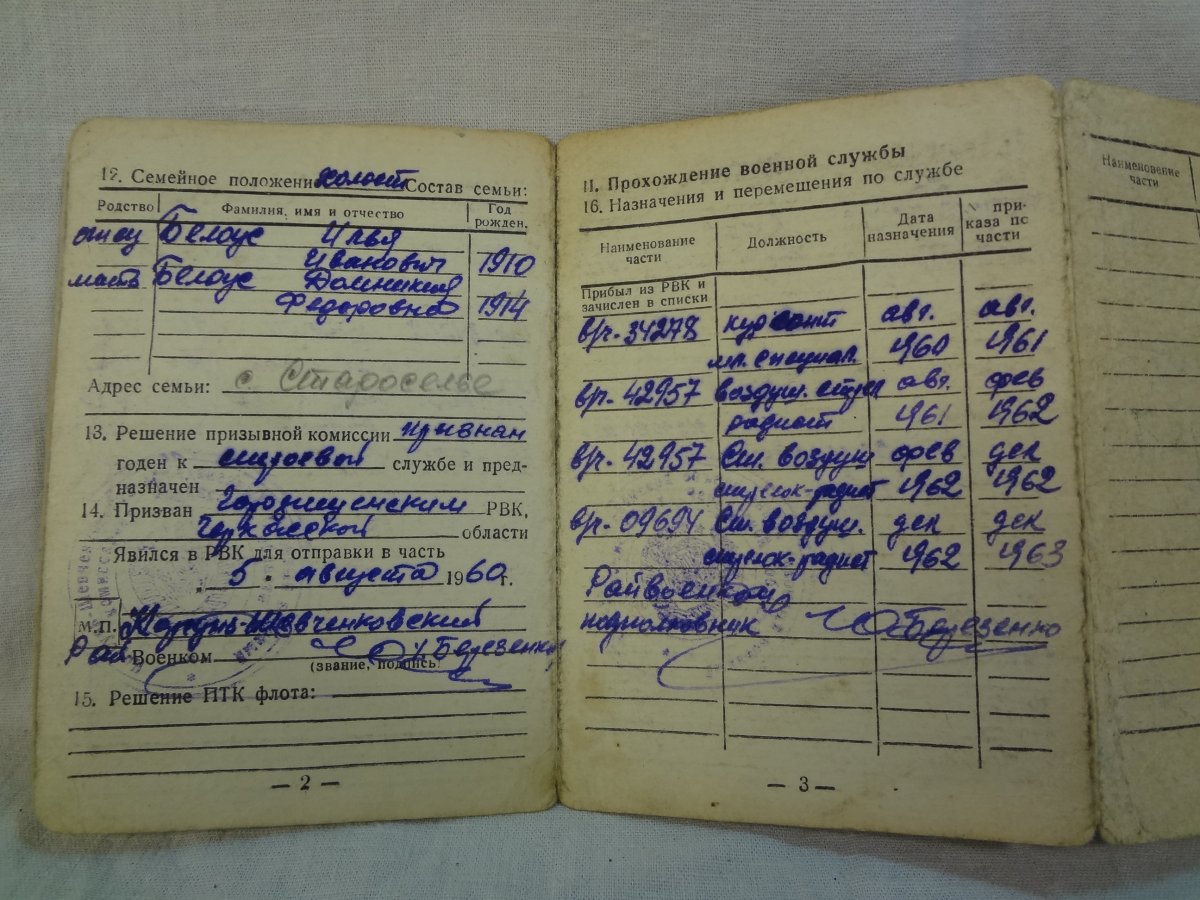 12. Семейное положение холост Состав семьи:
Родство Фамилия, имя и отчество Год рожден.
отец Белоус Илья
Иванович 1910
мать Белоус Домникия
Федоровна 1914
Адрес семьи: с. Староселье
13. Решение призывной комиссии признан
годен к строевой службе и пред-
назначен
14. Призван Городищенским РВК,
Черкасской области
Явился в РВК для отправки в часть
5 августа 1960г.
м.п. Корсунь-Шевченковский
Рай Военком Березенко
(звание, подпись)
15. Решение ПТК флота:
— 2 —
II. Прохождение военной службы
16. Назначения и перемешения по службе
Наименование части Должность Дата назначения № при- каза по части
Прибыл из РВК и
зачислен в списки
в/ч. 34278 курсант авг. авг.
мл. специал. 1960 1961
в/ч. 42957 воздуш. стрел авг. фев
радист 1961 1962
в/ч. 42957 Ст. воздуш фев дек
стрелок-радист 1962 1962
в/ч. 09694 Ст. воздуш. дек дек
стрелок-радист 1962 1963
Райвоенком
подполковник Березенко
— 3 —
Наименовение
части